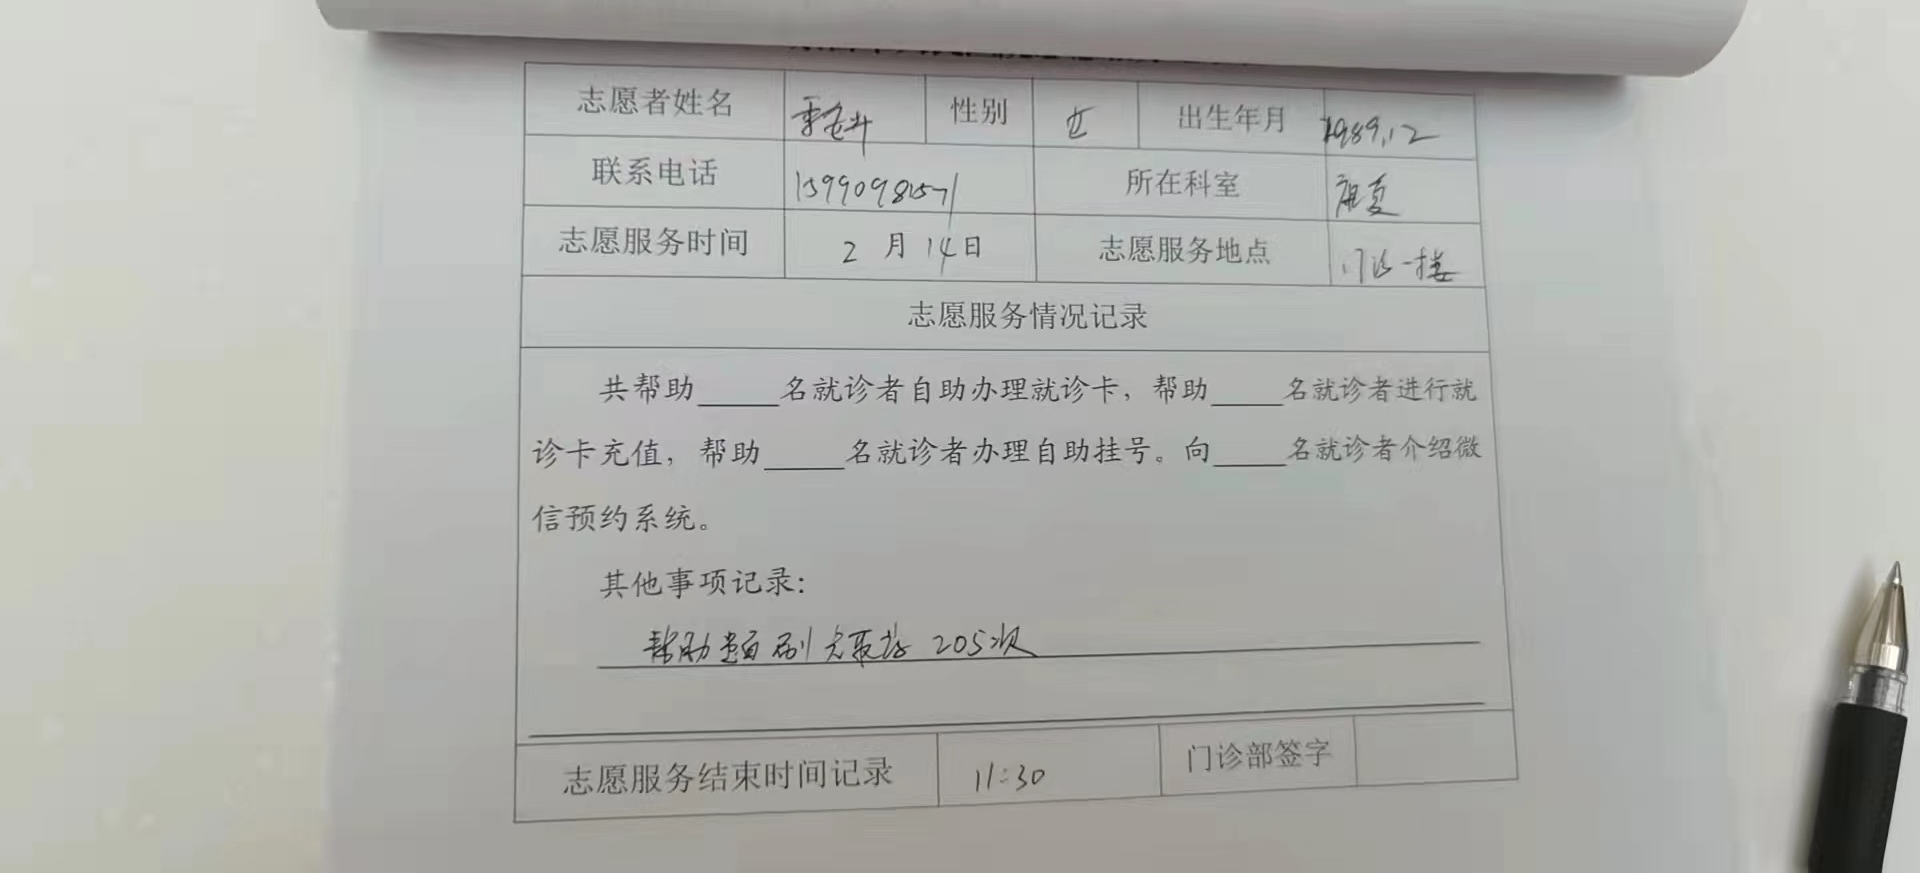 志愿者姓名 性别 女 出生年月 1989.12
联系电话 15990981571 所在科室 康复
志愿服务时间 2月14日 志愿服务地点 门诊一楼
志愿服务情况记录
共帮助_____名就诊者自助办理就诊卡，帮助_____名就诊者进行就
诊卡充值，帮助_____名就诊者办理自助挂号。向_____名就诊者介绍微
信预约系统。
其他事项记录：
帮助 205次
志愿服务结束时间记录 11:30 门诊部签字